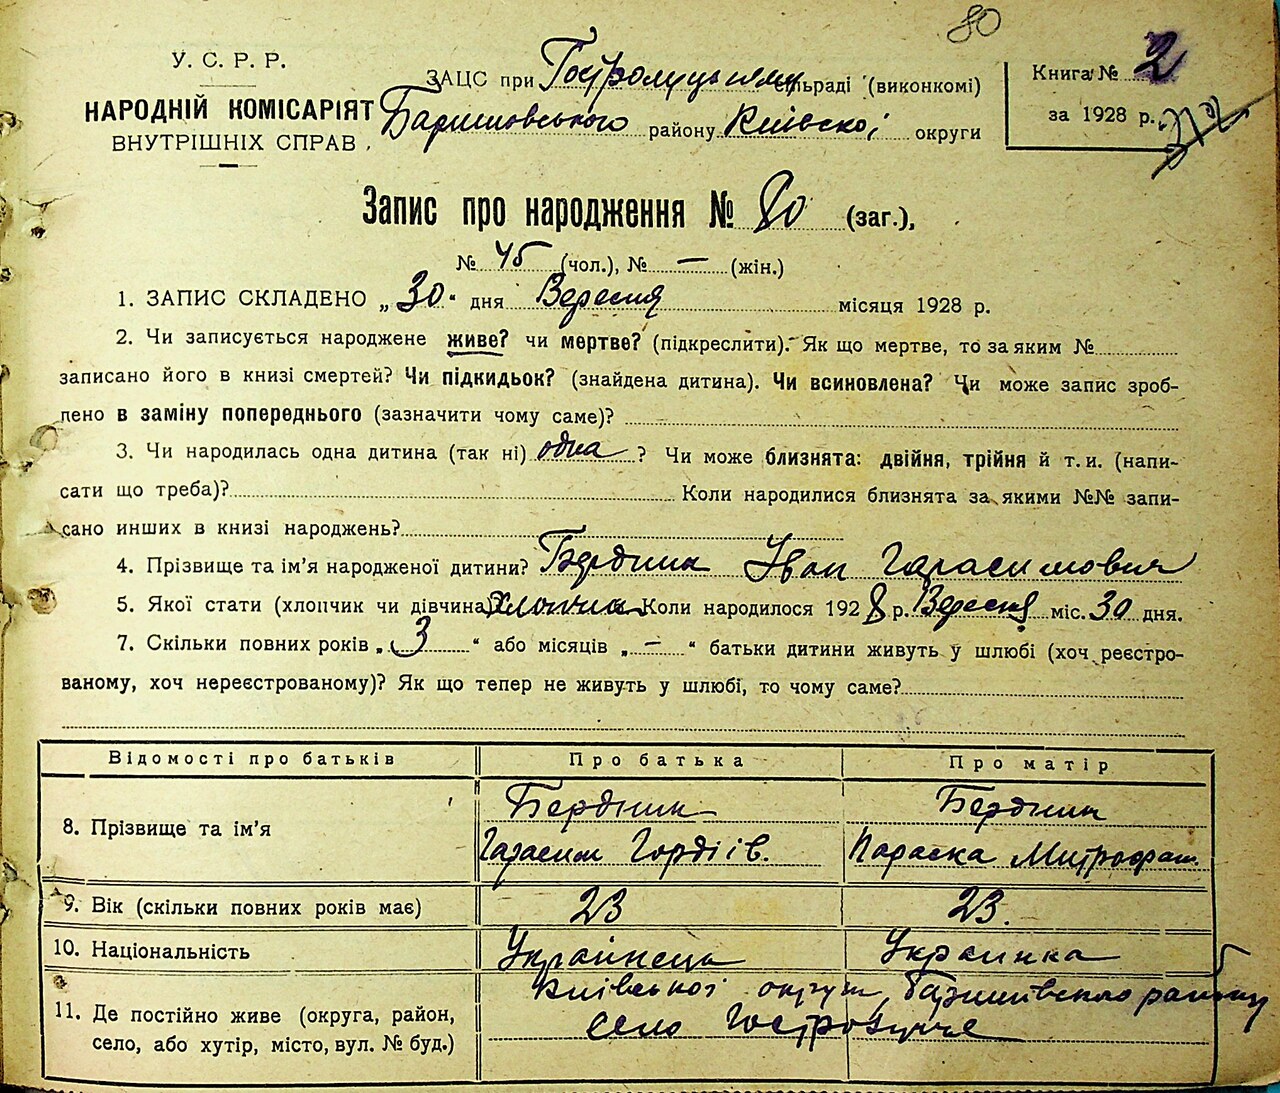 80
У. С. Р. Р.
НАРОДНІЙ КОМІСАРІЯТ
ВНУТРІШНІХ СПРАВ
ЗАЦС при Гостролуцькому сільраді (виконкомі)
Баришовського району Київскої округи
Книга № 2
за 1928 р.
Запис про народження № 80 (заг.),
№ 45 (чол.), № — (жін.)
1. ЗАПИС СКЛАДЕНО „ 30 “ дня Вересня місяця 1928 р.
2. Чи записується народжене живе? чи мертве? (підкреслити). Як що мертве, то за яким №
записано його в книзі смертей? Чи підкидьок? (знайдена дитина). Чи всиновлена? Чи може запис зроб-
лено в заміну попереднього (зазначити чому саме)?
3. Чи народилась одна дитина (так ні) одна ? Чи може близнята: двійня, трійня й т. и. (напи-
сати що треба)? Коли народилися близнята за якими №№ запи-
сано инших в книзі народжень?
4. Прізвище та ім'я народженої дитини? Бердник Іван Гарасимович
5. Якої стати (хлопчик чи дівчина) хлопчик Коли народилося 1928 р. Вересня міс. 30 дня.
7. Скільки повних років „ 3 “ або місяців „ — “ батьки дитини живуть у шлюбі (хоч реєстро-
ваному, хоч нереєстрованому)? Як що тепер не живуть у шлюбі, то чому саме?
Відомості про батьків Про батька Про матір
8. Прізвище та ім'я
Бердник
Гарасим Гордіів.
Бердник
Параска Митрофан.
9. Вік (скільки повних років має) 23 23.
10. Національність Українець Украинка
11. Де постійно живе (округа, район,
село, або хутір, місто, вул. № буд.)
Київської округи, Баришівского району
село Гостролуччє